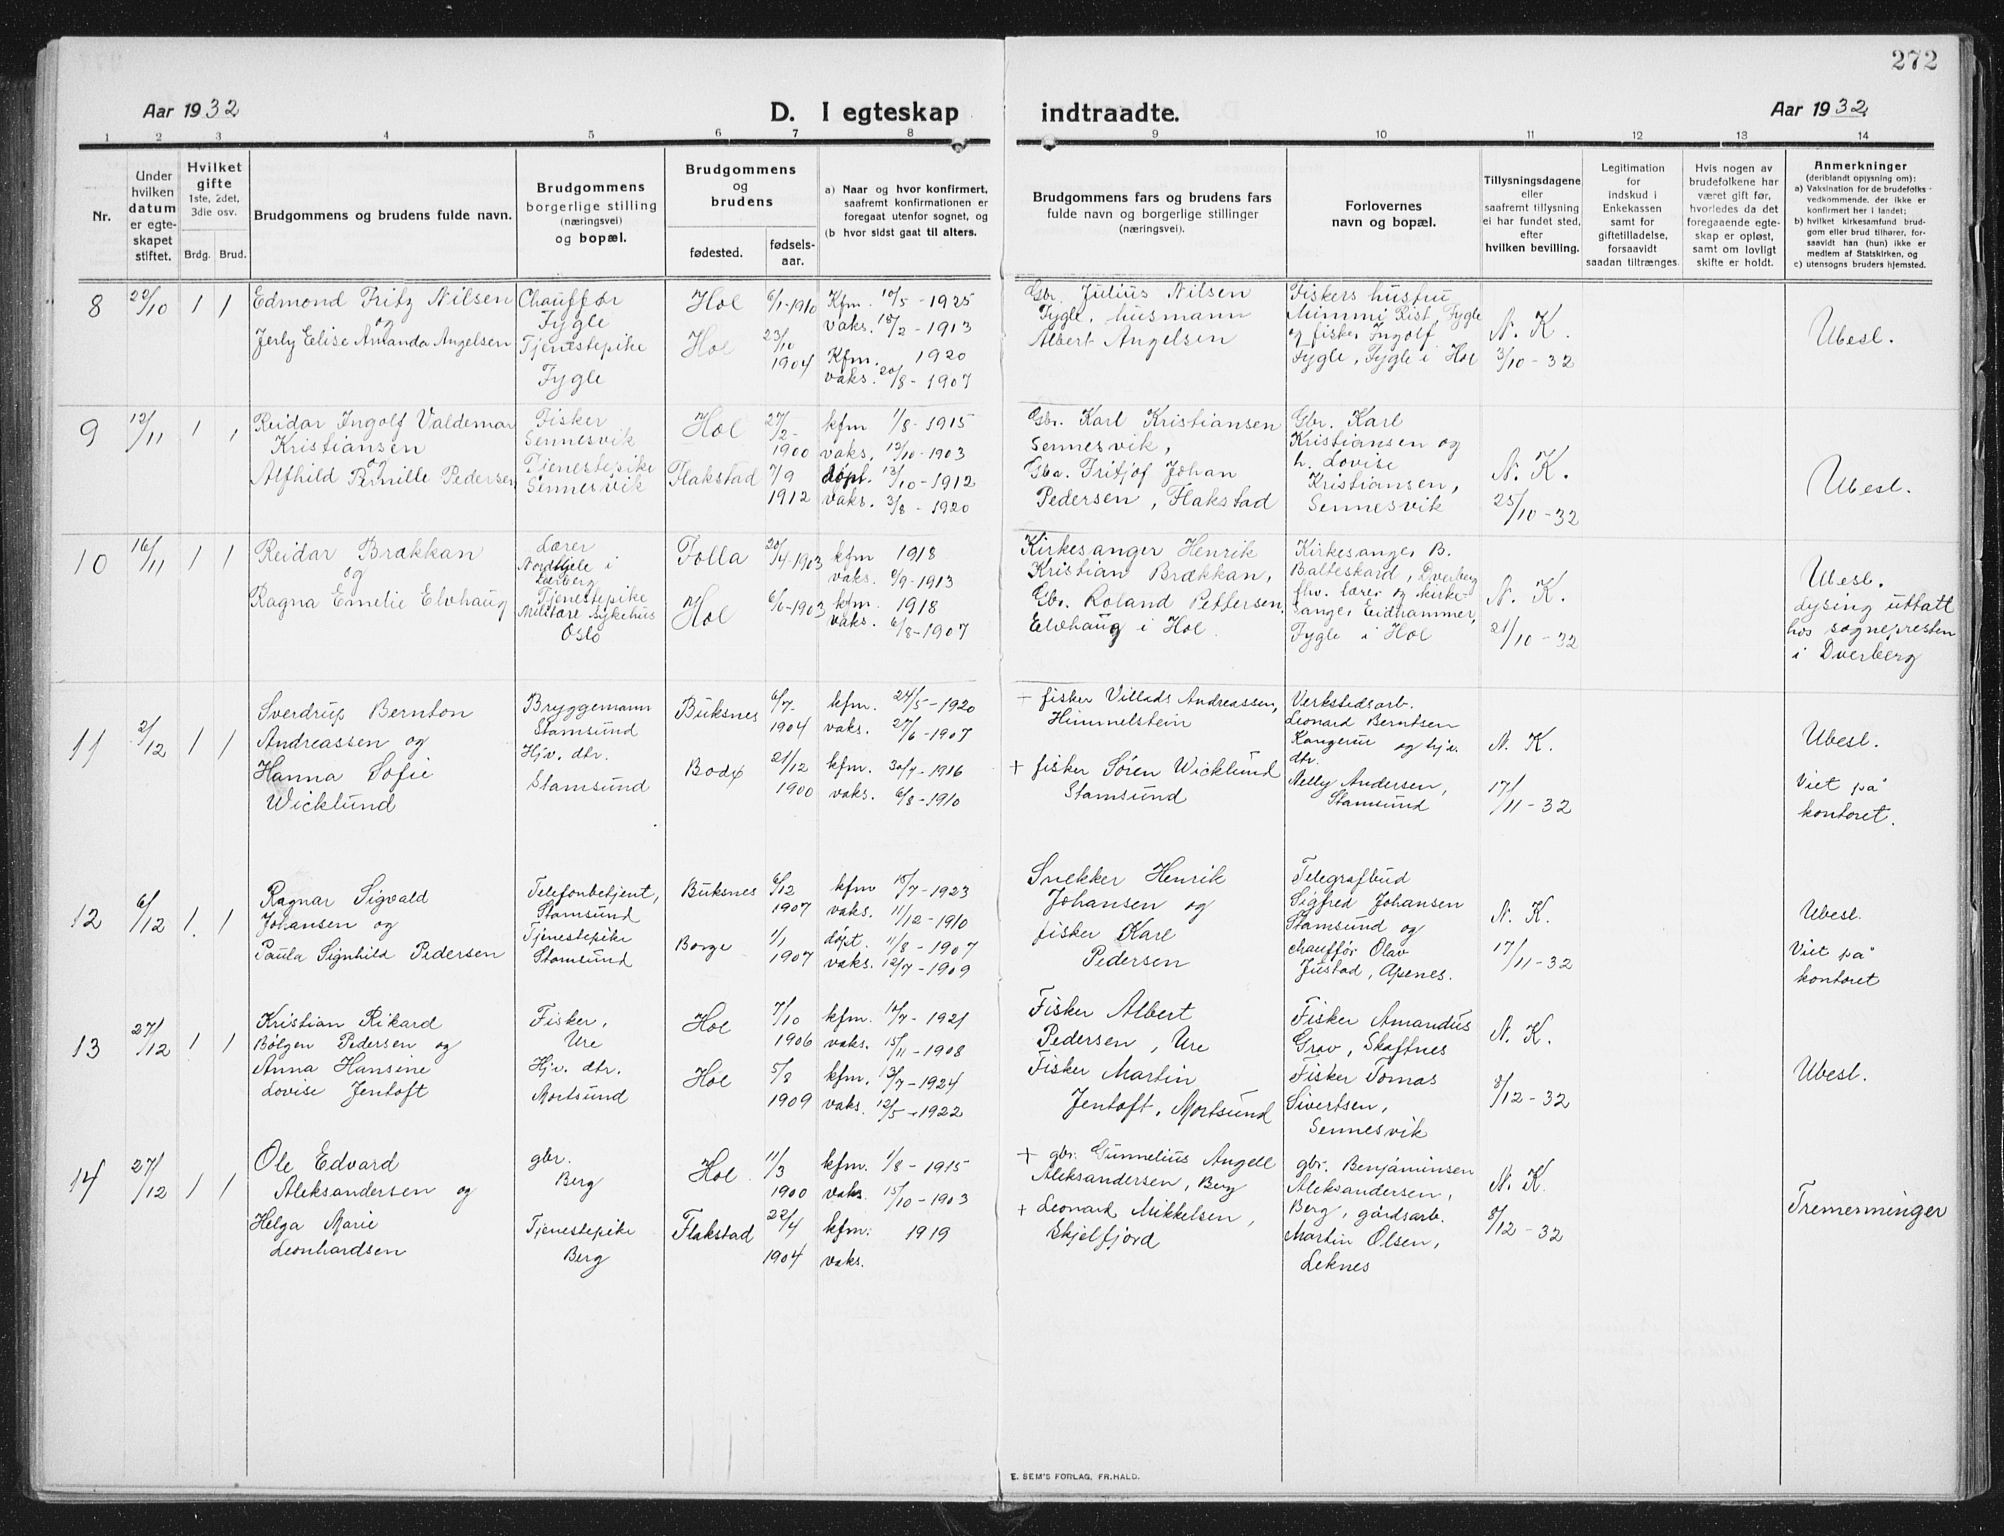 272
Aar 1932
D. I egteskap
indtraadte.
Aar 1932
1 2 3 4 5 6 7 8 9 10 11 12 13 14
Nr.
Under
hvilken
datum
er egte-
skapet
stiftet.
Hvilket
gifte
1ste, 2det,
3die osv.
Brdg. Brud.
Brudgommens og brudens fulde navn.
Brudgommens
borgerlige stilling
(næringsvei)
og bopæl.
Brudgommens
og
brudens
fødested.
fødsels-
aar.
a) Naar og hvor konfirmert,
saafremt konfirmationen er
foregaat utenfor sognet, og
(b hvor sidst gaat til alters.
Brudgommens fars og brudens fars
fulde navn og borgerlige stillinger
(næringsvei).
Forlovernes
navn og bopæl.
Tillysningsdagene
eller
saafremt tillysning
ei har fundet sted,
efter
hvilken bevilling.
Legitimation
for
indskud i
Enkekassen
samt for
giftetilladelse,
forsaavidt
saadan tiltrænges.
Hvis nogen av
brudefolkene har
været gift før,
hvorledes da det
foregaaende egte-
skap er opløst,
samt om lovligt
skifte er holdt.
Anmerkninger
(deriblandt opjysning om):
a) Vaksination for de brudefolks-
vedkommende, der ikke er
konfirmert her i landet;
b) hvilket kirkesamfund brud-
gom eller brud tilhører, for-
saavidt han (hun) ikke er
medlem af Statskirken, og
c) utensogns bruders hjemsted.
8
22/10
1
1
Edmond Fritz Nilsen
og
Jerly Elise Amanda Angelsen
Chauffør
Fygle
Tjenestepike
Fygle
Hol
Hol
6/1-1910
23/10
1904
Kfm. 10/5-1925
vaks. 18/2-1913
Kfm. 1920
vaks. 20/8-1907
Gbr. Julius Nilsen
Fygle, husmann
Albert Angelsen
Fiskers hustru
Mimmi Rist, Fygle
og fisker Ingolf
Fygle, Fygle i Hol
N. K.
3/10-32
Ubesl.
9
12/11
1
1
Reidar Ingolf Valdemar
Kristiansen
og
Alfhild Pernille Pedersen
Fisker
Sennesvik
Tjenestepike
Sennesvik
Hol
Flakstad
27/12-
1900
7/9
1912
kfm 1/8-1915
vaks. 13/10-1903
døpt. 13/10-1912
vaks. 3/8-1920
Gbr. Karl Kristiansen
Sennesvik,
Gba. Fritjof Johan
Pedersen, Flakstad
Gbr. Karl
Kristiansen og
h. Lovise
Kristiansen,
Sennesvik
N. K.
25/10-32
Ubesl.
10
16/11
1
1
Reidar Brækkan
og
Ragna Emelie Elvhaug
Lærer
i
Tjenestepike
Militære Sykehus
Oslo
Folla
Hol
20/4-1903
6/6-1903
kfm 1918
vaks. 6/9-1913
kfm. 1918
vaks. 6/8-1907
Kirkesanger Henrik
Kristian Brækkan,
Gbr. Roland Pettersen
Elvhaug i Hol
Kirkesanger B.
Balteskard, Dverberg
fhv. lærer og kirke-
sanger Eidhammer,
Fygle i Hol
N. K.
21/10-32
Ubesl.
Lysing uttatt
hos sognepresten
i Dverberg
11
2/12
1
1
Sverdrup Bernton
Andreassen og
Hanna Sofie
Wicklund
Bryggemann
Stamsund
Hjv. dtr.
Stamsund
Buksnes
Bodø
6/7-
1904
21/12
1900
kfm. 24/5-1920
vaks. 27/6-1907
kfm. 30/7-1916
vaks. 6/8-1910
+ fisker Villads Andreassen,
Himmelstein
+ fisker Søren Wicklund
Stamsund
Verkstedsarb.
Leonard Berntsen
Kangerur og hjv.
dtr.
Nelly Andersen,
Stamsund
N. K.
17/11-32
Ubesl.
Viet på
kontoret.
12
6/12
1
1
Ragnar Sigvald
Johansen og
Paula Signhild Pedersen
Telefonbetjent,
Stamsund
Tjenestepike
Stamsund
Buksnes
Borge
6/12
1907
1/1
1907
kfm 15/7-1923
vaks. 11/12-1910
døpt. 11/8-1907
vaks. 12/7-1909
Snekker Henrik
Johansen og
fisker Karl
Pedersen
Telegrafbud
Sigfred Johansen
Stamsund og
chauffør Olav
Justad, Apenes.
N. K.
17/11-32
Ubesl.
Viet på
kontoret
13
27/12
1
1
Kristian Rikard
Bølgen Pedersen og
Anna Hansine
Lovise Jentoft
Fisker,
Ure
Hjv. dtr.
Mortsund
Hol
Hol
7/10
1906
5/8
1909
kfm. 12/7-1921
vaks. 15/11-1908
kfm. 13/7-1924
vaks. 12/5-1922
Fisker Albert
Pedersen, Ure
Fisker Martin
Jentoft, Mortsund
Fisker Amandus
Grav, Skaftnes
Fisker Tomas
Sivertsen,
Sennesvik
N. K.
8/12-32
Ubesl.
14
27/12
1
1
Ole Edvard
Aleksandersen og
Helga Marie
Leonhardsen
gbr.
Berg
Tjenestepike
Berg
Hol
Flakstad
11/3
1900
22/4
1904
kfm. 1/8-1915
vaks. 15/10-1903
kfm: 1919
vaks.
+ gbr. Gunnelius Angell
Aleksandersen, Berg
+ Leonard Mikkelsen,
Skjelfjord
gbr. Benjaminsen
Aleksandersen,
Berg, gårdsarb.
Martin Olsen,
Leknes
N. K.
8/12-32
Tremenninger
E. SEM'S FORLAG, FR.HALD.